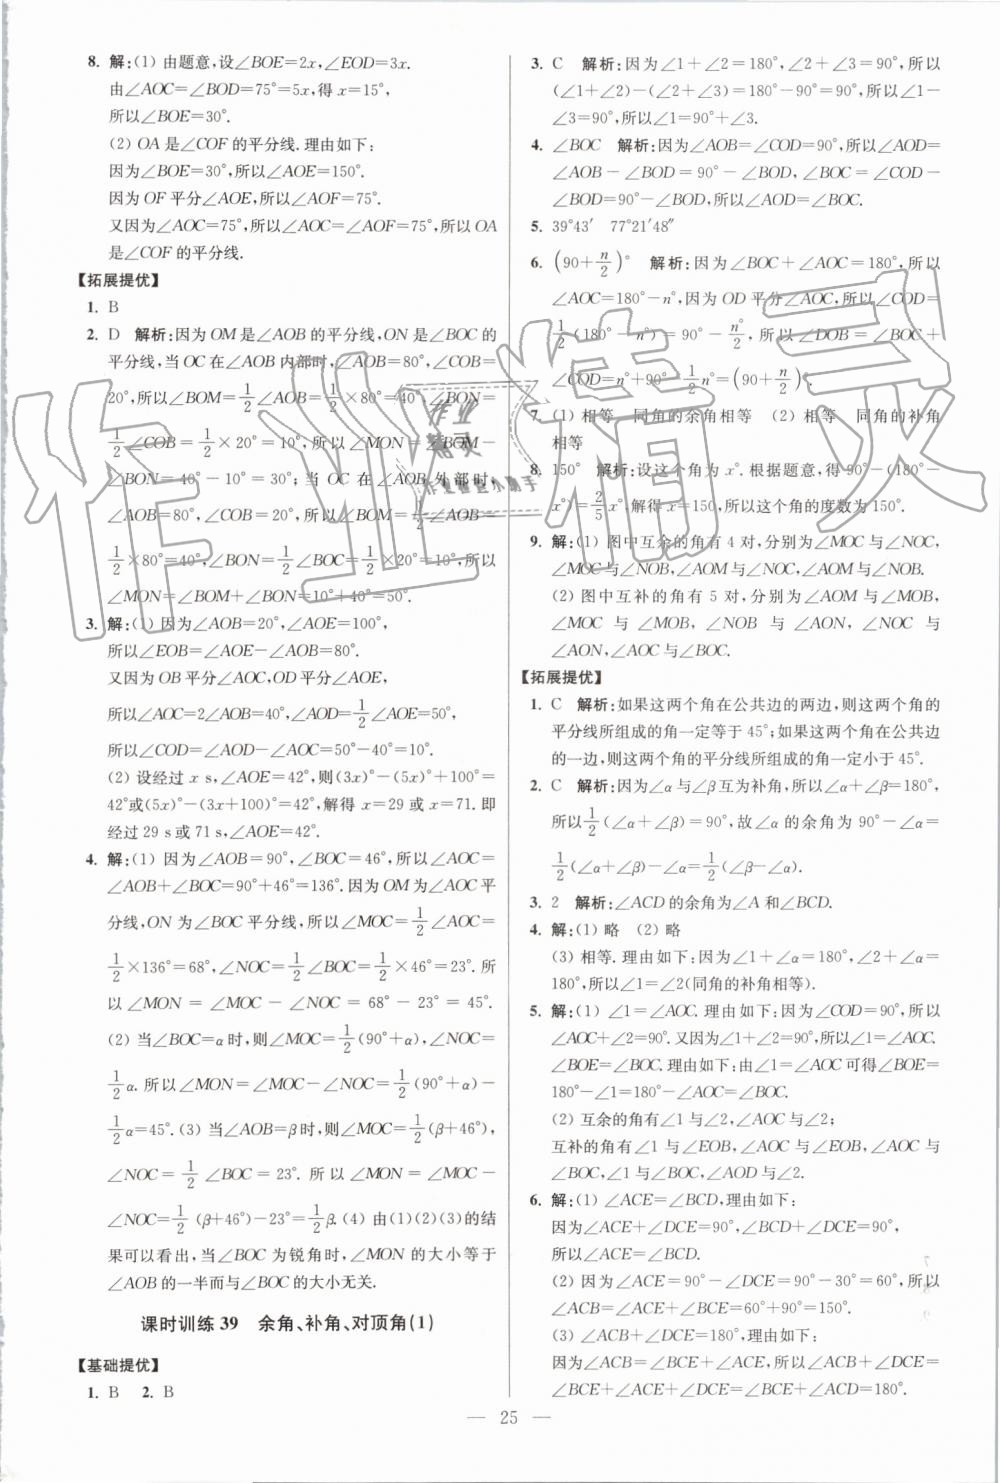 8. 解:(1) 由题意,设∠BOE=2x,∠EOD=3x.
由∠AOC=∠BOD=75°=5x,得 x=15°,
所以∠BOE=30°.
(2) OA 是∠COF的平分线.理由如下:
因为∠BOE=30°,所以∠AOE=150°.
因为 OF 平分∠AOE,所以∠AOF=75°.
又因为∠AOC=75°,所以∠AOF=∠AOC,所以 OA
是∠COF的平分线.
【拓展提优】
1. B
2. D 解析:因为OM是∠AOB 的平分线,ON 是∠BOC的
平分线,当 OC 在∠AOB 内部时,∠AOB=80°,∠COB=
20°,所以∠BOM=1/2∠AOB=1/2×80°=40°,∠BON=
1/2∠COB=1/2×20°=10°,所以∠MON=∠BOM-
∠BON=40°-10°=30°;当 OC 在∠AOB 外部时,
∠AOB=80°,∠COB=20°,所以∠BOM=1/2∠AOB=
1/2×80°=40°,∠BON=1/2∠BOC=1/2×20°=10°,所以
∠MON=∠BOM+∠BON=10°+40°=50°.
3. 解:(1) 因为∠AOB=20°,∠AOE=100°,
所以∠EOB=∠AOE-∠AOB=80°.
又因为 OB 平分∠AOC,OD 平分∠AOE,
所以∠AOC=2∠AOB=40°,∠AOD=1/2∠AOE=50°,
所以∠COD=∠AOD-∠AOC=50°-40°=10°.
(2) 设经过 x s,∠AOE=42°,则(3x)°-(5x)°+100°=
42°或(5x)°-(3x+100)°=42°,解得 x=29 或 x=71.即
经过 29 s 或 71 s,∠AOE=42°.
4. 解:(1) 因为∠AOB=90°,∠BOC=46°,所以∠AOC=
∠AOB+∠BOC=90°+46°=136°.因为 OM为∠AOC平
分线,ON 为∠BOC 平分线,所以∠MOC=1/2∠AOC=
1/2×136°=68°,∠NOC=1/2∠BOC=1/2×46°=23°.所
以∠MON=∠MOC-∠NOC=68°-23°=45°.
(2) 当∠BOC=α时,则∠MOC=1/2(90°+α),∠NOC=
1/2α.所以∠MON=∠MOC-∠NOC=1/2(90°+α)-
1/2α=45°.(3) 当∠AOB=β时,则∠MOC=1/2(β+46°),
∠NOC=1/2∠BOC=23°.所以∠MON=∠MOC-
∠NOC=1/2(β+46°)-23°=1/2β.(4) 由(1)(2)(3)的结
果可以看出,当∠BOC 为锐角时,∠MON 的大小等于
∠AOB 的一半而与∠BOC的大小无关.
课时训练 39 余角、补角、对顶角(1)
【基础提优】
1. B 2. B
3. C 解析:因为∠1+∠2=180°,∠2+∠3=90°,所以
(∠1+∠2)-(∠2+∠3)=180°-90°=90°,所以∠1-
∠3=90°,所以∠1=90°+∠3.
4. ∠BOC 解析:因为∠AOB=∠COD=90°,所以∠AOD=
∠AOB-∠BOD=90°-∠BOD,∠BOC=∠COD-
∠BOD=90°-∠BOD,所以∠AOD=∠BOC.
5. 39°43′ 77°21′48″
6. (90+n/2)° 解析:因为∠BOC+∠AOC=180°,所以
∠AOC=180°-n°,因为 OD 平分∠AOC,所以∠COD=
1/2(180°-n°)=90°-n°/2,所以∠DOB=∠BOC+
∠COD=n°+90°-1/2n°=(90+n/2)°.
7. (1) 相等 同角的余角相等 (2) 相等 同角的补角
相等
8. 150° 解析:设这个角为 x°.根据题意,得 90°-(180°-
x°)=2/5x°,解得 x=150,所以这个角的度数为150°.
9. 解:(1) 图中互余的角有 4 对,分别为∠MOC与∠NOC,
∠MOC与∠NOB,∠AOM与∠NOC,∠AOM与∠NOB.
(2) 图中互补的角有 5 对,分别为∠AOM 与∠MOB,
∠MOC 与 ∠MOB,∠NOB 与 ∠AON,∠NOC 与
∠AON,∠AOC与∠BOC.
【拓展提优】
1. C 解析:如果这两个角在公共边的两边,则这两个角的
平分线所组成的角一定等于 45°;如果这两个角在公共边
的一边,则这两个角的平分线所组成的角一定小于 45°.
2. C 解析:因为∠α与∠β互为补角,所以∠α+∠β=180°,
所以1/2(∠α+∠β)=90°,故∠α的余角为 90°-∠α=
1/2(∠α+∠β)-∠α=1/2(∠β-∠α).
3. 2 解析:∠ACD的余角为∠A 和∠BCD.
4. 解:(1) 略 (2) 略
(3) 相等.理由如下:因为∠1+∠α=180°,∠2+∠α=
180°,所以∠1=∠2(同角的补角相等).
5. 解:(1) ∠1=∠AOC.理由如下:因为∠COD=90°,所以
∠AOC+∠2=90°.又因为∠1+∠2=90°,所以∠1=∠AOC.
∠BOE=∠BOC.理由如下:由∠1=∠AOC可得∠BOE=
180°-∠1=180°-∠AOC=∠BOC.
(2) 互余的角有∠1与∠2,∠AOC与∠2;
互补的角有∠1与∠EOB,∠AOC与∠EOB,∠AOC 与
∠BOC,∠1与∠BOC,∠AOD与∠2.
6. 解:(1) ∠ACE=∠BCD,理由如下:
因为∠ACE+∠DCE=90°,∠BCD+∠DCE=90°,
所以∠ACE=∠BCD.
(2) 因为∠ACE=90°-∠DCE=90°-30°=60°,所以
∠ACB=∠ACE+∠BCE=60°+90°=150°.
(3) ∠ACB+∠DCE=180°.理由如下:
因为∠ACB=∠BCE+∠ACE,所以∠ACB+∠DCE=
∠BCE+∠ACE+∠DCE=∠BCE+∠ACD=180°.
— 25 —
作业精灵